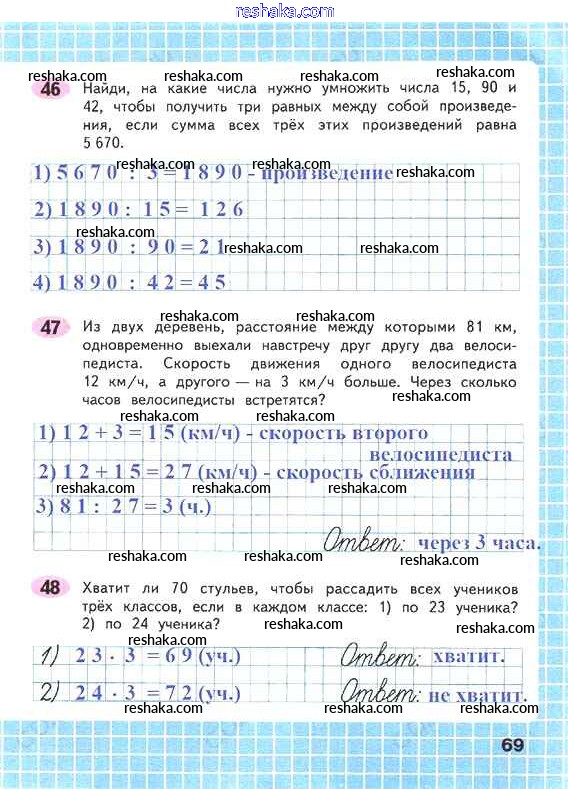 reshaka.com
reshaka.com reshaka.com reshaka.com
46 Найди, на какие числа нужно умножить числа 15, 90 и
42, чтобы получить три равных между собой произведе-
reshaka.com reshaka.com reshaka.com
ния, если сумма всех трёх этих произведений равна
5 670.
reshaka.com reshaka.com
1) 5 6 7 0 : 3 = 1 8 9 0 - произведение
reshaka.com reshaka.com
2) 1 8 9 0 : 1 5 = 1 2 6
reshaka.com reshaka.com
3) 1 8 9 0 : 9 0 = 2 1
reshaka.com reshaka.com
4) 1 8 9 0 : 4 2 = 4 5
reshaka.com reshaka.com
47 Из двух деревень, расстояние между которыми 81 км,
одновременно выехали навстречу друг другу два велоси-
педиста. Скорость движения одного велосипедиста
12 км/ч, а другого — на 3 км/ч больше. Через сколько
reshaka.com reshaka.com reshaka.com
часов велосипедисты встретятся?
reshaka.com reshaka.com
1) 1 2 + 3 = 1 5 (км/ч) - скорость второго
велосипедиста
reshaka.com reshaka.com
2) 1 2 + 1 5 = 2 7 (км/ч) - скорость сближения
reshaka.com reshaka.com
3) 8 1 : 2 7 = 3 (ч.)
reshaka.com reshaka.com
Ответ: через 3 часа.
reshaka.com reshaka.com reshaka.com
48 Хватит ли 70 стульев, чтобы рассадить всех учеников
трёх классов, если в каждом классе: 1) по 23 ученика?
reshaka.com reshaka.com
2) по 24 ученика?
reshaka.com
reshaka.com reshaka.com
1) 2 3 · 3 = 6 9 (уч.) Ответ: хватит.
reshaka.com reshaka.com
2) 2 4 · 3 = 7 2 (уч.) Ответ: не хватит.
reshaka.com reshaka.com
69
reshaka.com